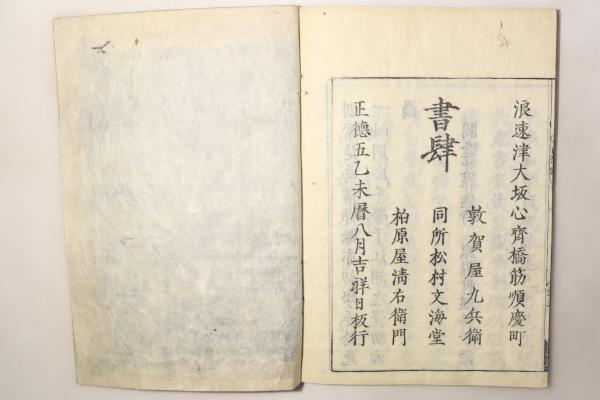 浪速津大坂心齊橋筋順慶町
敦賀屋九兵衛
書肆
同所松村文海堂
柏原屋淸右衛門
正德五乙未曆八月吉祥日板行